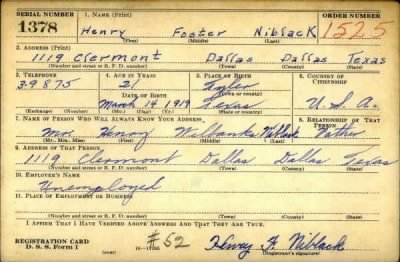 SERIAL NUMBER 1. NAME (Print) ORDER NUMBER
1378 Henry Foster Niblack 1525
(First) (Middle) (Last)
2. ADDRESS (Print)
1119 Clermont Dallas Dallas Texas
(Number and street or R. F. D. number) (Town) (County) (State)
3. TELEPHONE 4. AGE IN YEARS 5. PLACE OF BIRTH 6. COUNTRY OF CITIZENSHIP
39875 21 Tyler
DATE OF BIRTH (Town or county)
March 14 1919 Texas U. S. A.
(Exchange) (Number) (Mo.) (Day) (Yr.) (State or country)
7. NAME OF PERSON WHO WILL ALWAYS KNOW YOUR ADDRESS 8. RELATIONSHIP OF THAT PERSON
Mr. Henry Wilbanks Niblack Father
(Mr., Mrs., Miss) (First) (Middle) (Last)
9. ADDRESS OF THAT PERSON
1119 Clermont Dallas Dallas Texas
(Number and street or R. F. D. number) (Town) (County) (State)
10. EMPLOYER'S NAME
Unemployed
11. PLACE OF EMPLOYMENT OR BUSINESS
(Number and street or R. F. D. number) (Town) (County) (State)
I AFFIRM THAT I HAVE VERIFIED ABOVE ANSWERS AND THAT THEY ARE TRUE.
REGISTRATION CARD
D. S. S. Form 1 #52 Henry F. Niblack
(Registrant's signature)